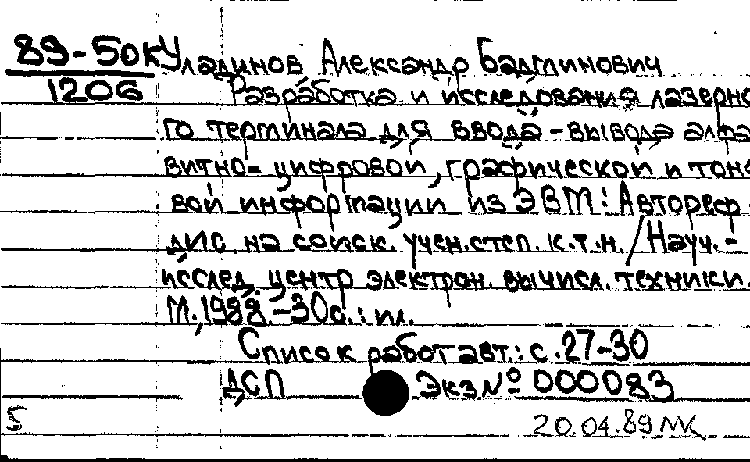 89-50к Уладинов Александр Бадминович
1206 Разработка и исследования лазерно
го терминала для ввода-вывода алфа
витно-цифровой, графической и тоно
вой информации из ЭВМ: Автореф.
дис на соиск. учен. степ. к.т.н. / Науч.-
исслед. центр электрон. вычисл. техники.
М., 1988.-30с.: ил.
Список работ авт.: с. 27-30
ДСП Экз № 000083
20.04.89